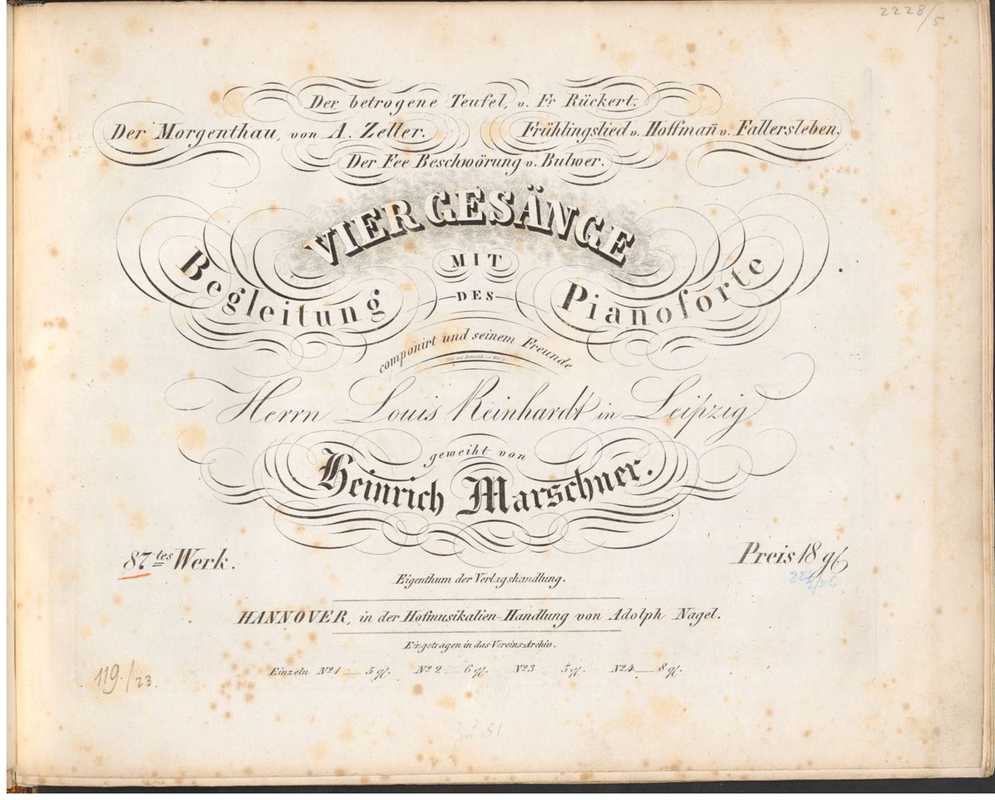 2228/5
Der betrogene Teufel, v. Fr Rückert.
Der Morgenthau, von A. Zeller. Frühlingslied v. Hoffmañ v. Fallersleben.
Der Fee Beschwörung v. Bulwer.
VIER GESÄNGE
MIT
Begleitung DES Pianoforte
componirt und seinem Freunde
Herrn Louis Reinhardt in Leipzig
geweiht von
Heinrich Marschner.
87tes Werk. Preis 18 gr
Eigenthum der Verlagshandlung.
HANNOVER, in der Hofmusikalien-Handlung von Adolph Nagel.
Eingetragen in das Vereins-Archiv.
Einzeln No 1 — 5 gr. No 2 — 6 gr. No 3 5 gr. No 4 — 8 gr.
119./23.